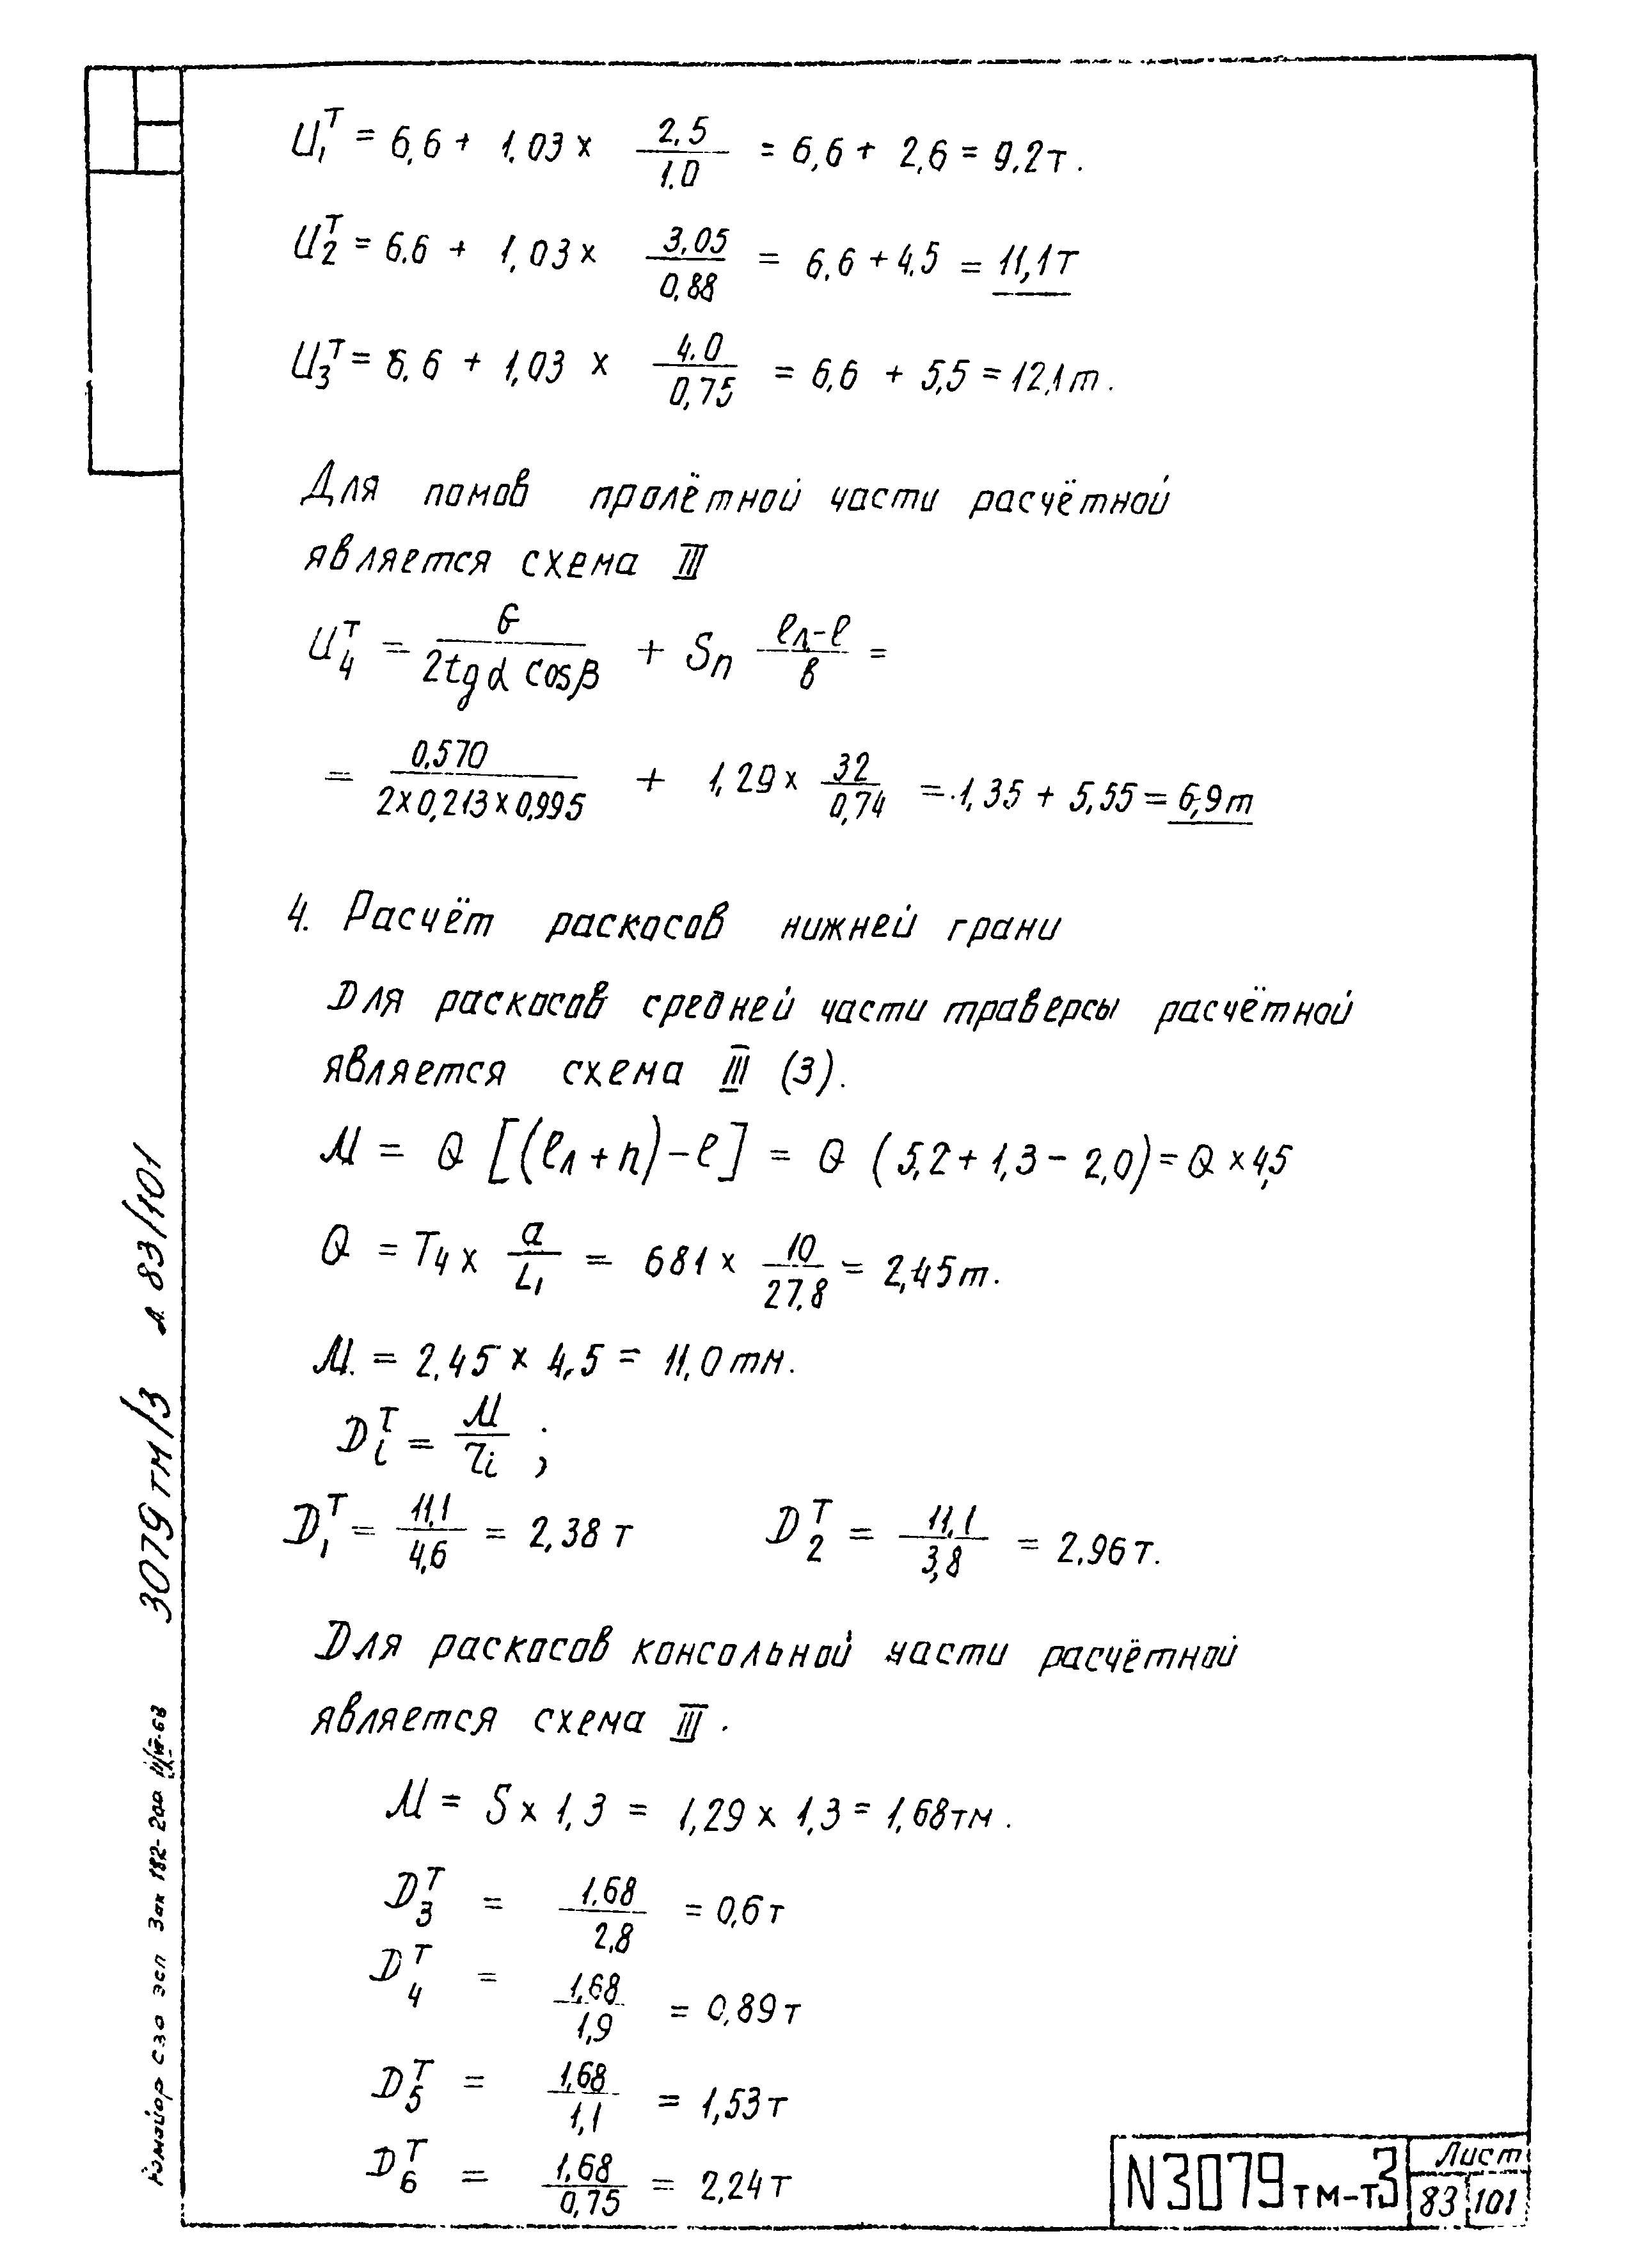 U₁ᵀ = 6,6 + 1.03 × 2,5/1.0 = 6,6 + 2,6 = 9.2т.
U₂ᵀ = 6.6 + 1,03 × 3,05/0,88 = 6.6 + 4.5 = 11,1т
U₃ᵀ = 6.6 + 1,03 × 4.0/0,75 = 6,6 + 5,5 = 12,1т.
Для помов пролётной части расчётной
является схема III
U₄ᵀ = G/(2tgα cosβ) + Sп (lл-l)/в =
= 0.570/(2×0,213×0,995) + 1,29 × 32/0,74 = 1,35 + 5,55 = 6,9т
4. Расчёт раскосов нижней грани
Для раскосов средней части траверсы расчётной
является схема III (3).
М = Q [(lл + h) - l] = Q (5,2 + 1,3 - 2,0) = Q × 4,5
Q = T₄ × a/L₁ = 681 × 10/27.8 = 2,45т.
М. = 2,45 × 4,5 = 11,0 тм.
Dᵢᵀ = М/τi ;
D₁ᵀ = 11,1/4,6 = 2,38 т D₂ᵀ = 11,1/3,8 = 2,96 т.
Для раскосов консольной части расчётной
является схема III.
М = S × 1,3 = 1,29 × 1,3 = 1,68тм.
D₃ᵀ = 1.68/2,8 = 0,6 т
D₄ᵀ = 1,68/1,9 = 0,89 т
D₅ᵀ = 1,68/1,1 = 1,53 т
D₆ᵀ = 1,68/0,75 = 2,24 т
N3079тм-т3
Лист
83 101
3079тм/3 л. 83/101
СЗО ЭСП Зак 182-200